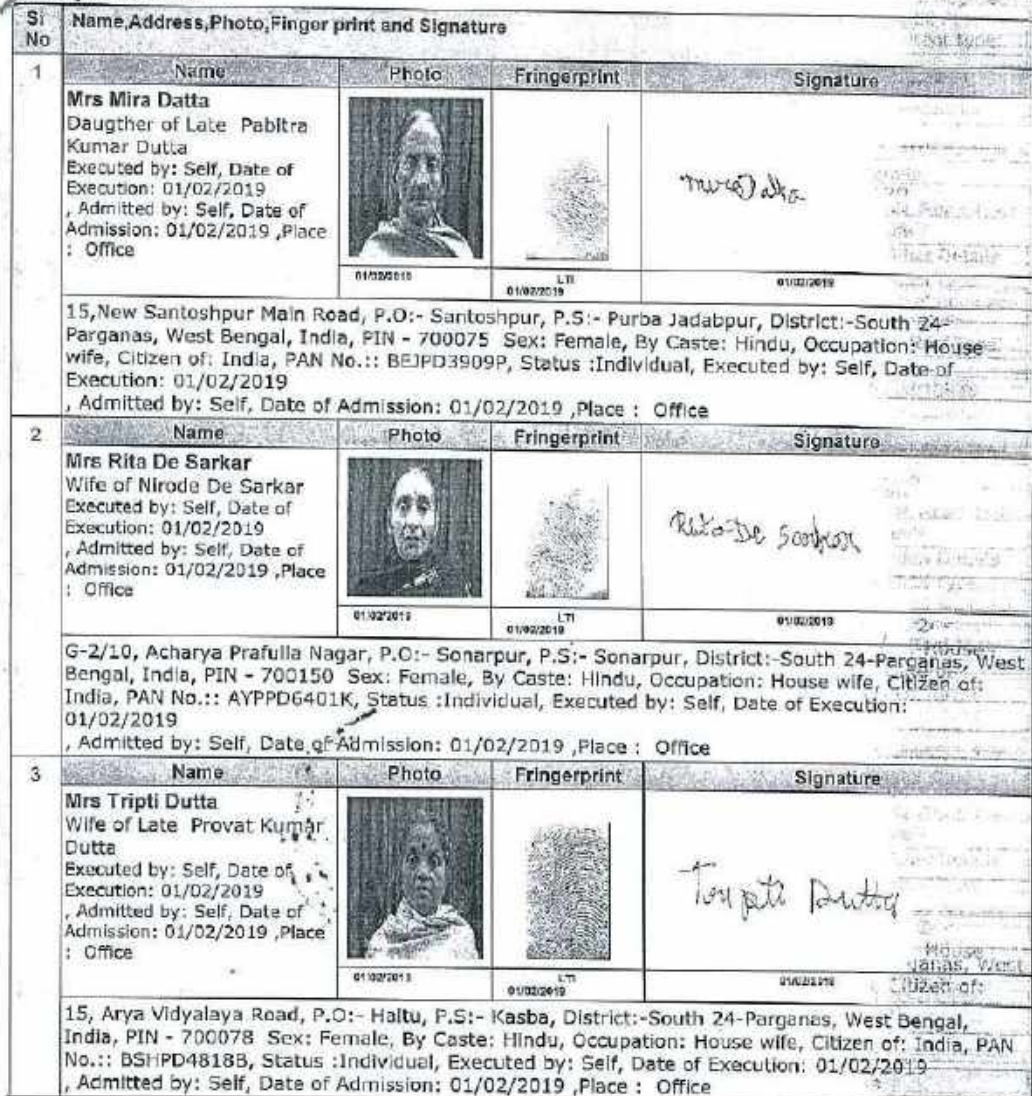 Sl No Name,Address,Photo,Finger print and Signature
1 Name Photo Fringerprint Signature
Mrs Mira Datta
Daugther of Late Pabitra
Kumar Dutta
Executed by: Self, Date of
Execution: 01/02/2019
, Admitted by: Self, Date of
Admission: 01/02/2019 ,Place
: Office
01/02/2019 LTI 01/02/2019 01/02/2019
15,New Santoshpur Main Road, P.O:- Santoshpur, P.S:- Purba Jadabpur, District:-South 24-
Parganas, West Bengal, India, PIN - 700075 Sex: Female, By Caste: Hindu, Occupation: House
wife, Citizen of: India, PAN No.:: BEJPD3909P, Status :Individual, Executed by: Self, Date of
Execution: 01/02/2019
, Admitted by: Self, Date of Admission: 01/02/2019 ,Place : Office
2 Name Photo Fringerprint Signature
Mrs Rita De Sarkar
Wife of Nirode De Sarkar
Executed by: Self, Date of
Execution: 01/02/2019
, Admitted by: Self, Date of
Admission: 01/02/2019 ,Place
: Office
Rita De Sarkar
01/02/2019 LTI 01/02/2019 01/02/2019
G-2/10, Acharya Prafulla Nagar, P.O:- Sonarpur, P.S:- Sonarpur, District:-South 24-Parganas, West
Bengal, India, PIN - 700150 Sex: Female, By Caste: Hindu, Occupation: House wife, Citizen of:
India, PAN No.:: AYPPD6401K, Status :Individual, Executed by: Self, Date of Execution:
01/02/2019
, Admitted by: Self, Date of Admission: 01/02/2019 ,Place : Office
3 Name Photo Fringerprint Signature
Mrs Tripti Dutta
Wife of Late Provat Kumar
Dutta
Executed by: Self, Date of
Execution: 01/02/2019
, Admitted by: Self, Date of
Admission: 01/02/2019 ,Place
: Office
Dutta
House
ganas, West
Citizen of:
01/02/2019 LTI 01/02/2019 01/02/2019
15, Arya Vidyalaya Road, P.O:- Haltu, P.S:- Kasba, District:-South 24-Parganas, West Bengal,
India, PIN - 700078 Sex: Female, By Caste: Hindu, Occupation: House wife, Citizen of: India, PAN
No.:: BSHPD4818B, Status :Individual, Executed by: Self, Date of Execution: 01/02/2019
, Admitted by: Self, Date of Admission: 01/02/2019 ,Place : Office